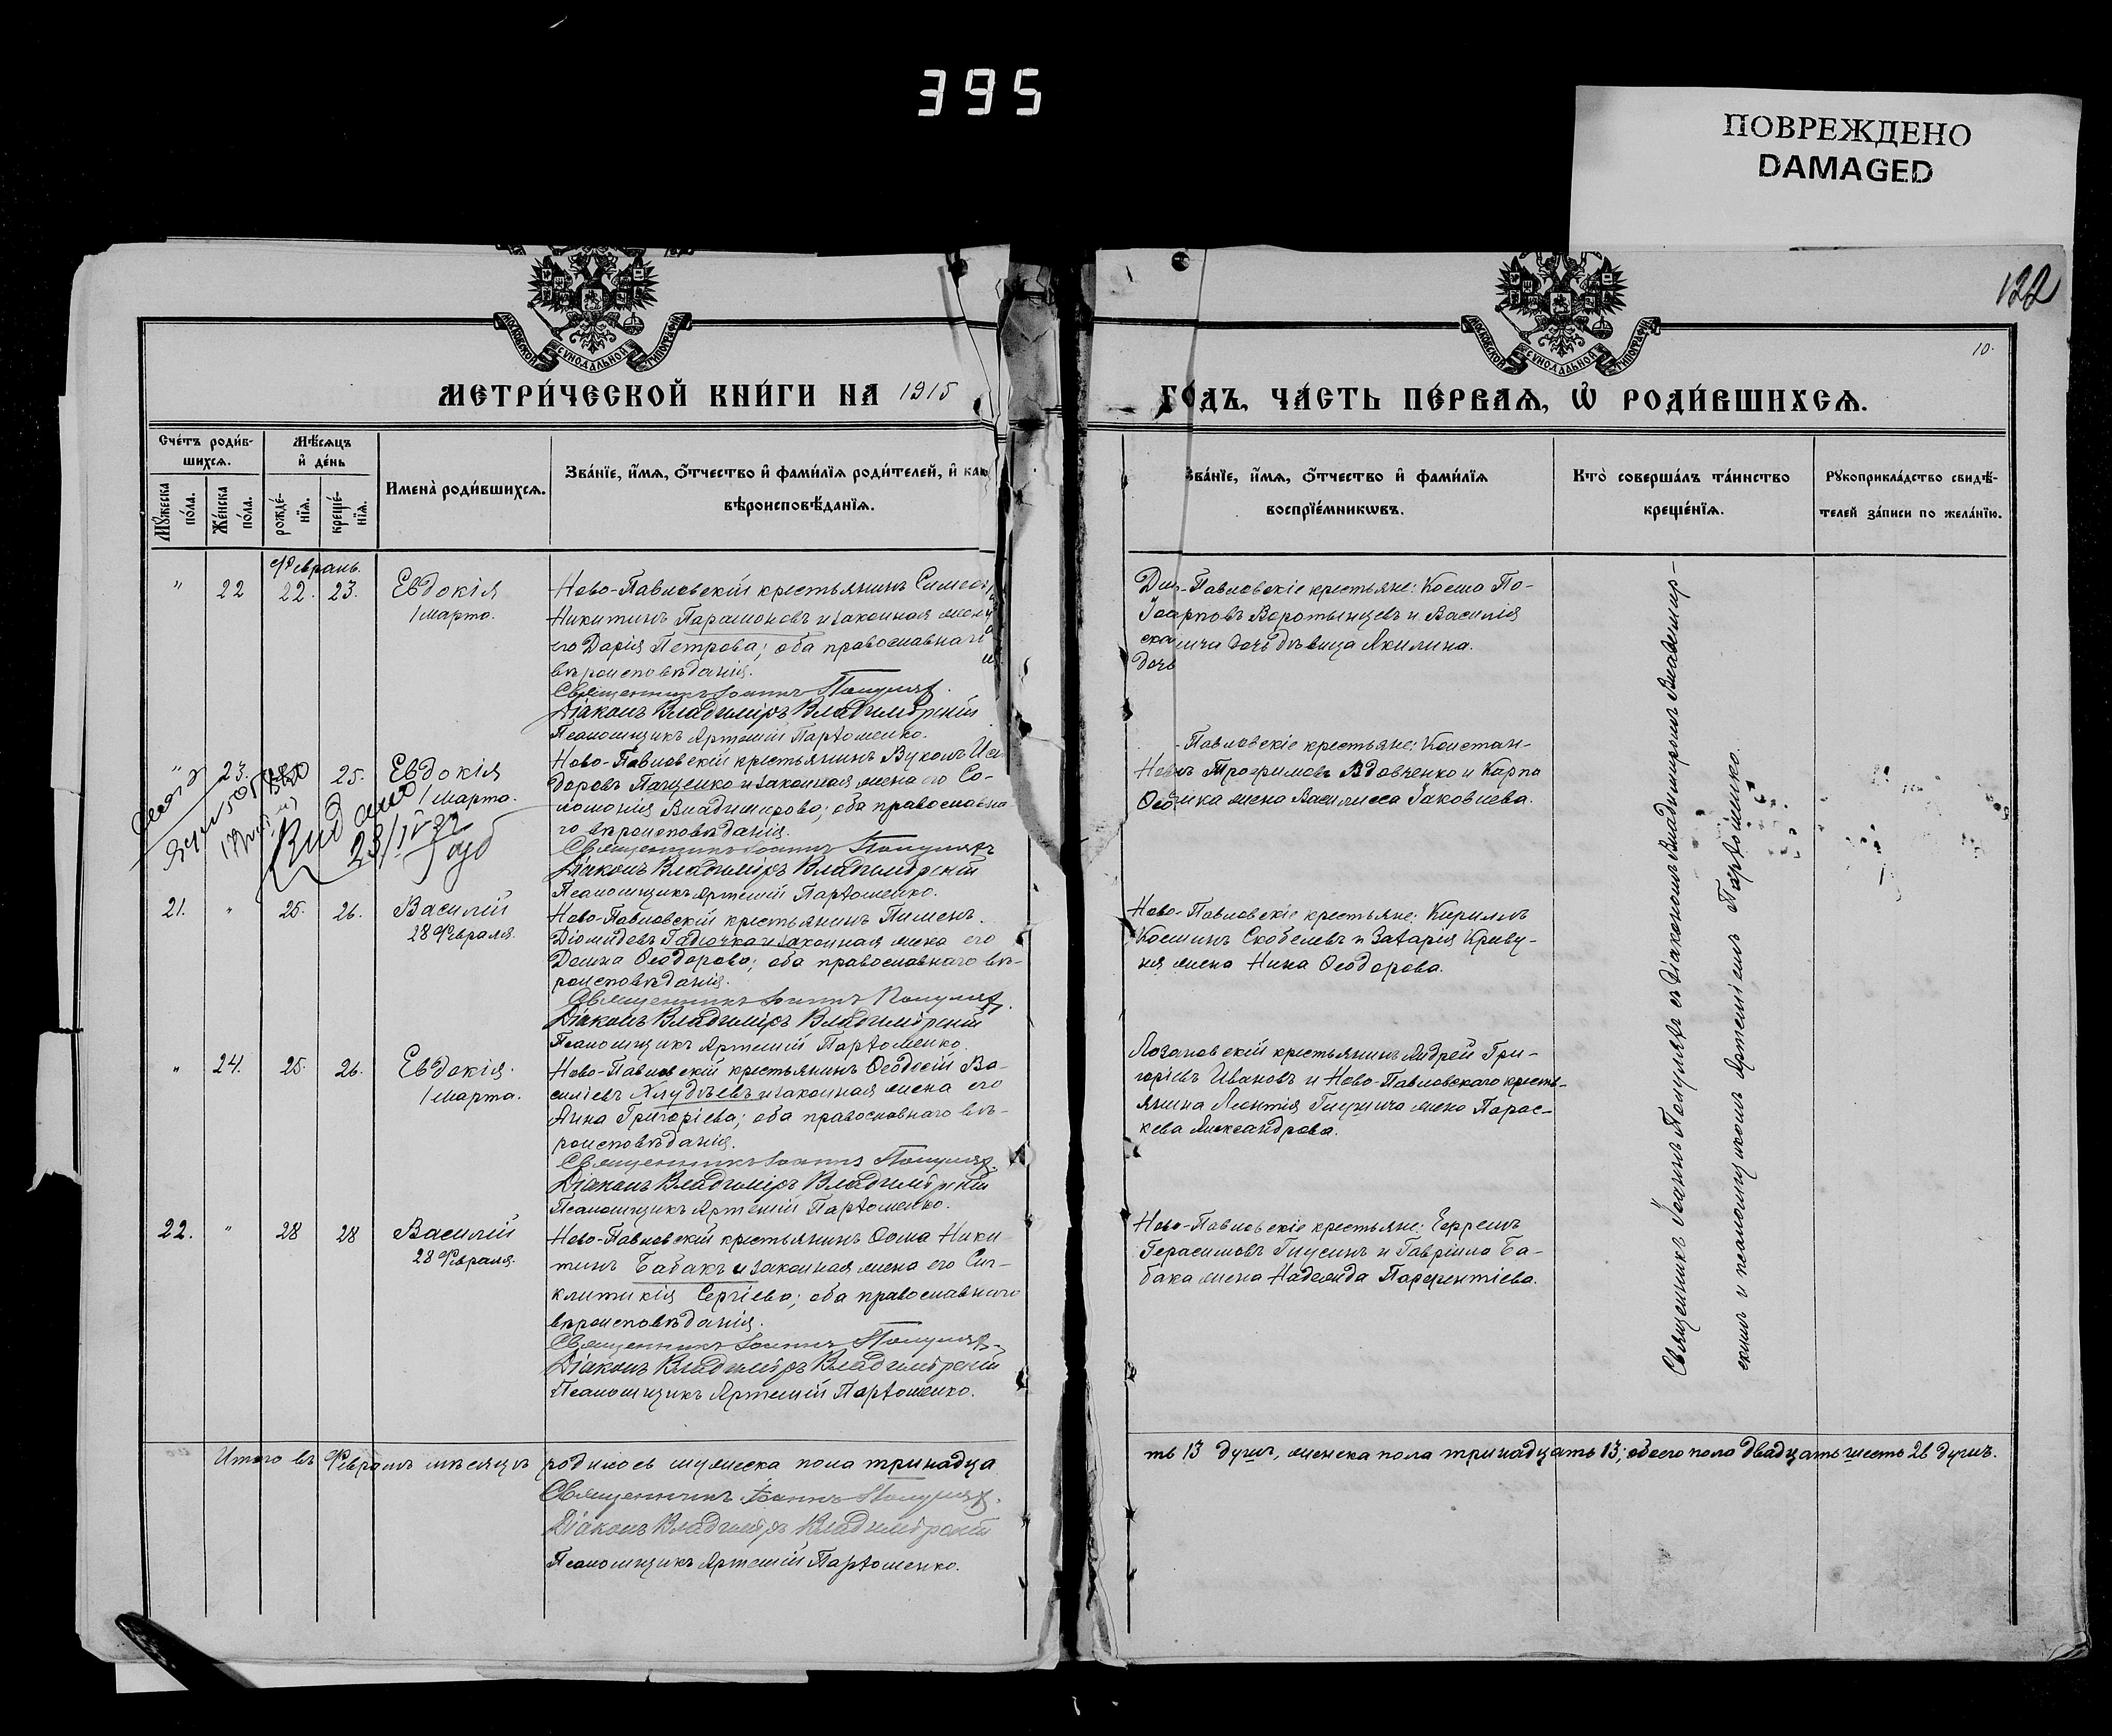 395
ПОВРЕЖДЕНО
DAMAGED
122
10.
МОСКОВСКОЙ СУНОДАЛЬНОЙ ТИПОГРАФІИ
МОСКОВСКОЙ СУНОДАЛЬНОЙ ТИПОГРАФІИ
МЕТРИ́ЧЕСКОЙ КНИ́ГИ НА 1915
ГО́ДЪ, ЧА́СТЬ ПЕ́РВАѦ, Ѽ РОДИ́ВШИХСѦ.
Сче́тъ роди́в-
шихсѧ.
Мꙋ́жеска по́ла.
Же́нска по́ла.
Мѣ́сѧцъ
и҆ де́нь
рожде́-
нїѧ.
креще́-
нїѧ.
Имена̀ роди́вшихсѧ.
Зва́нїе, и҆́мѧ, ѻ҆́тчество и҆ фами́лїѧ роди́телей, и҆ как
вѣроисповѣ́данїѧ.
Зва́нїе, и҆́мѧ, ѻ҆́тчество и҆ фами́лїѧ
воспрїе́мникѡвъ.
Кто̀ соверша́лъ та́инство
креще́нїѧ.
Рꙋкоприкла́дство свидѣ́-
телей за́писи по жела́нїю.
Февраль.
" 22 22. 23. Евдокія
1 марта.
Ново-Павловскій крестьянинъ Симео
Никитинъ Парамоновъ и законная жен
его Дарія Петрова; оба православнаг
вѣроисповѣданія.
Священникъ Іоаннъ
Діаконъ Владиміръ Владимірскій
Псаломщикъ Артемій Пархоменко.
-Павловскіе крестьяне: Косма По-
карповъ Воротынцевъ и Василія
дочь дѣвица Акилина.
дочь
" 23. 25. Евдокія
1 марта.
Ново-Павловскій крестьянинъ Вуколъ Иси
доровъ Пащенко и законная жена его Со-
ломонія Владимирова; оба православна-
го вѣроисповѣданія.
Священникъ Іоаннъ
Діаконъ Владиміръ Владимірскій
Псаломщикъ Артемій Пархоменко.
23/IV
-Павловскіе крестьяне: Констан-
Трофимовъ Вдовченко и Карпа
жена Василисса Іаковлева.
21. " 25. 26. Василій
28 Февраля.
Ново-Павловскій крестьянинъ Пименъ
Діомидовъ Гадючка и законная жена его
Домна Ѳеодорова; оба православнаго вѣ-
роисповѣданія.
Священникъ Іоаннъ
Діаконъ Владиміръ Владимірскій
Псаломщикъ Артемій Пархоменко.
Ново-Павловскіе крестьяне: Кириллъ
Косминъ Скобелевъ и Захарія Криву-
ля жена Нина Ѳеодорова.
" 24. 25. 26. Евдокія.
1 марта.
Ново-Павловскій крестьянинъ Ѳеодосій Ва-
силіевъ Хлудѣевъ и законная жена его
Анна Григоріева; оба православнаго вѣ-
роисповѣданія.
Священникъ Іоаннъ
Діаконъ Владиміръ Владимірскій
Псаломщикъ Артемій Пархоменко.
Лозановскій крестьянинъ Андрей Гри-
горіевъ Ивановъ и Ново-Павловскаго кресть-
янина Леонтія жена Парас-
кева Александрова.
22. " 28 28 Василій
28 Февраля.
Ново-Павловскій крестьянинъ Ѳома Ники-
тинъ Бабакъ и законная жена его Син-
клитикія Сергіева; оба православнаго
вѣроисповѣданія.
Священникъ Іоаннъ
Діаконъ Владиміръ Владимірскій
Псаломщикъ Артемій Пархоменко.
Ново-Павловскіе крестьяне: Ефремъ
Герасимовъ Гнусинъ и Гавріила Ба-
бака жена Надежда Парфентіева.
Священникъ Іоаннъ съ Діакономъ Владимиромъ Владимир-
скимъ и псаломщикомъ Артеміемъ Пархоменко.
Итого въ Февралѣ мѣсяцѣ родилось мужеска пола тринадца
ть 13 душъ, женска пола тринадцать 13; обоего пола двадцать шесть 26 душъ.
Священникъ Іоаннъ
Діаконъ Владиміръ Владимірскій
Псаломщикъ Артемій Пархоменко.